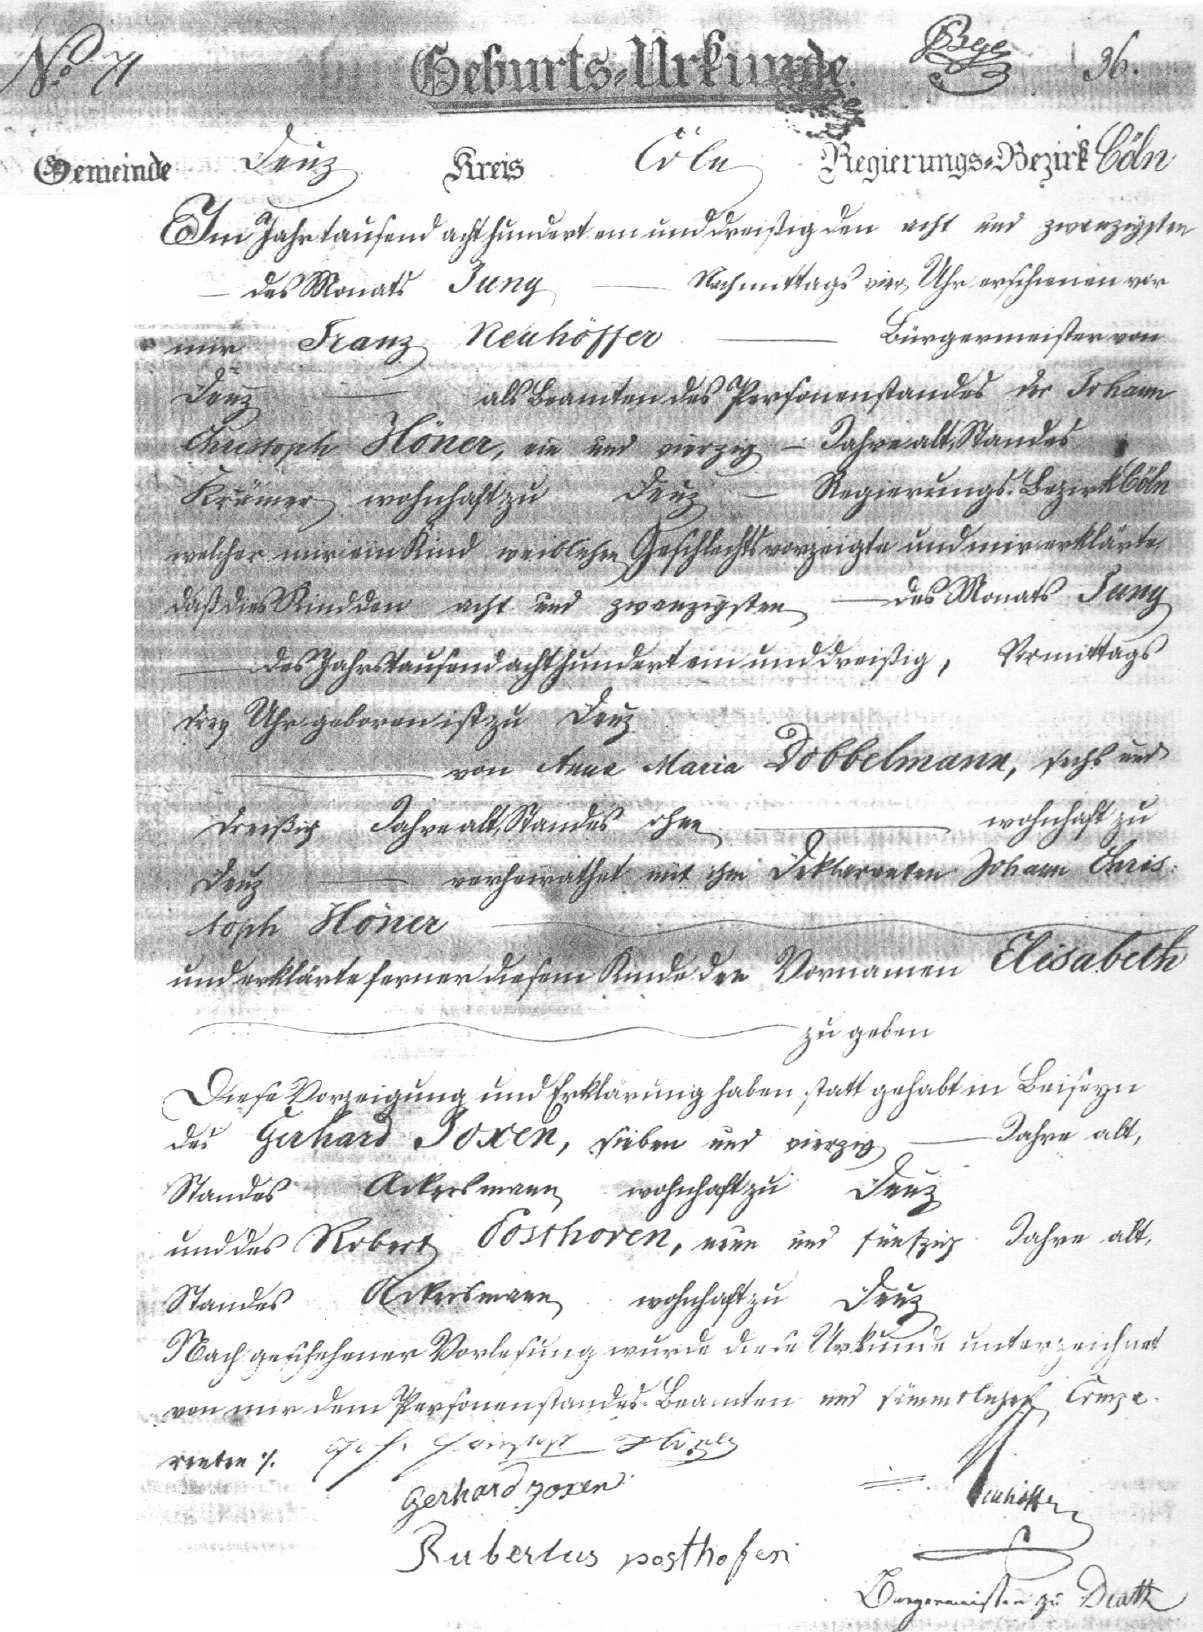 No 71 Geburts-Urkunde. 36.
Gemeinde Deuz Kreis Cöln Regierungs-Bezirk Cöln
Im Jahr tausend acht hundert ein und dreißig den acht und zwanzigsten
des Monats Juny Nachmittags vier Uhr erschienen vor
mir Franz Neuhöffer Bürgermeister von
Deuz als Beamten des Personenstandes der Johann
Christoph Höner, ein und vierzig Jahre alt, Standes
Krämer wohnhaft zu Deuz Regierungs-Bezirk Cöln
welcher mir ein Kind weiblichen Geschlechts vorzeigte und mir erklärte,
daß dies Kind den acht und zwanzigsten des Monats Juny
des Jahrs tausend acht hundert ein und dreißig, Vormittags
drey Uhr geboren ist zu Deuz
von Anna Maria Dobbelmann, sechs und
dreißig Jahre alt, Standes ohne wohnhaft zu
Deuz verheirathet mit ihm Deklaranten Johann Chris-
toph Höner
und erklärte ferner diesem Kinde den Vornamen Elisabeth
zu geben
Diese Vorzeigung und Erklärung haben statt gehabt in Beiseyn
des Gerhard Joxen, sieben und vierzig Jahre alt,
Standes Ackersmann wohnhaft zu Deuz
und des Robert Posthoven, neun und fünfzig Jahre alt,
Standes Ackersmann wohnhaft zu Deuz
Nach geschehener Vorlesung wurde diese Urkunde unterzeichnet
von mir dem Personenstandes-Beamten und sämmtlichen Compa-
renten ./.
Gerhard joxen
Neuhöffer
Rubertus posthofen
Bürgermeister zu